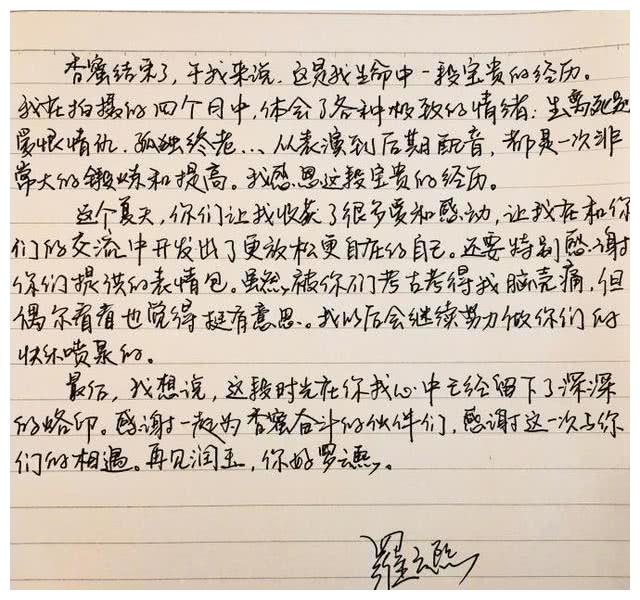 香蜜结束了，于我来说，这是我生命中一段宝贵的经历。
我在拍摄的四个月中，体会了各种极致的情绪：生离死别
爱恨情仇，孤独终老…从表演到后期配音，都是一次非
常大的锻炼和提高。我感恩这段宝贵的经历。
这个夏天，你们让我收获了很多爱和感动，让我在和你
们的交流中开发出了更放松更自在的自己。还要特别感谢
你们提供的表情包。虽然被你们考古考得我脑壳痛，但
偶尔看看也觉得挺有意思。我以后会继续努力做你们的
快乐喷泉的。
最后，我想说，这段时光在你我心中已经留下了深深
的烙印。感谢一起为香蜜奋斗的伙伴们，感谢这一次与你
们的相遇。再见润玉，你好罗云熙。
羅云熙